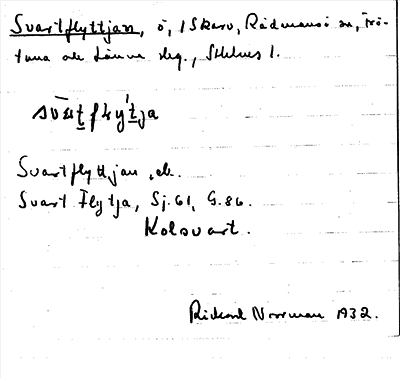 Svartflyttjan, ö, i Skarv, Rådmansö sn, Frö-
tuna och Länna slg., Sthlms l.
svā̀ṭflýṭja
Svartflyttjan, ek.
Svart Flytja, Sj. 61, G. 86.
Kolsvart.
Rickard Norrman 1932.